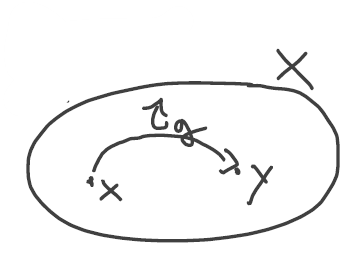 X
τg
x y